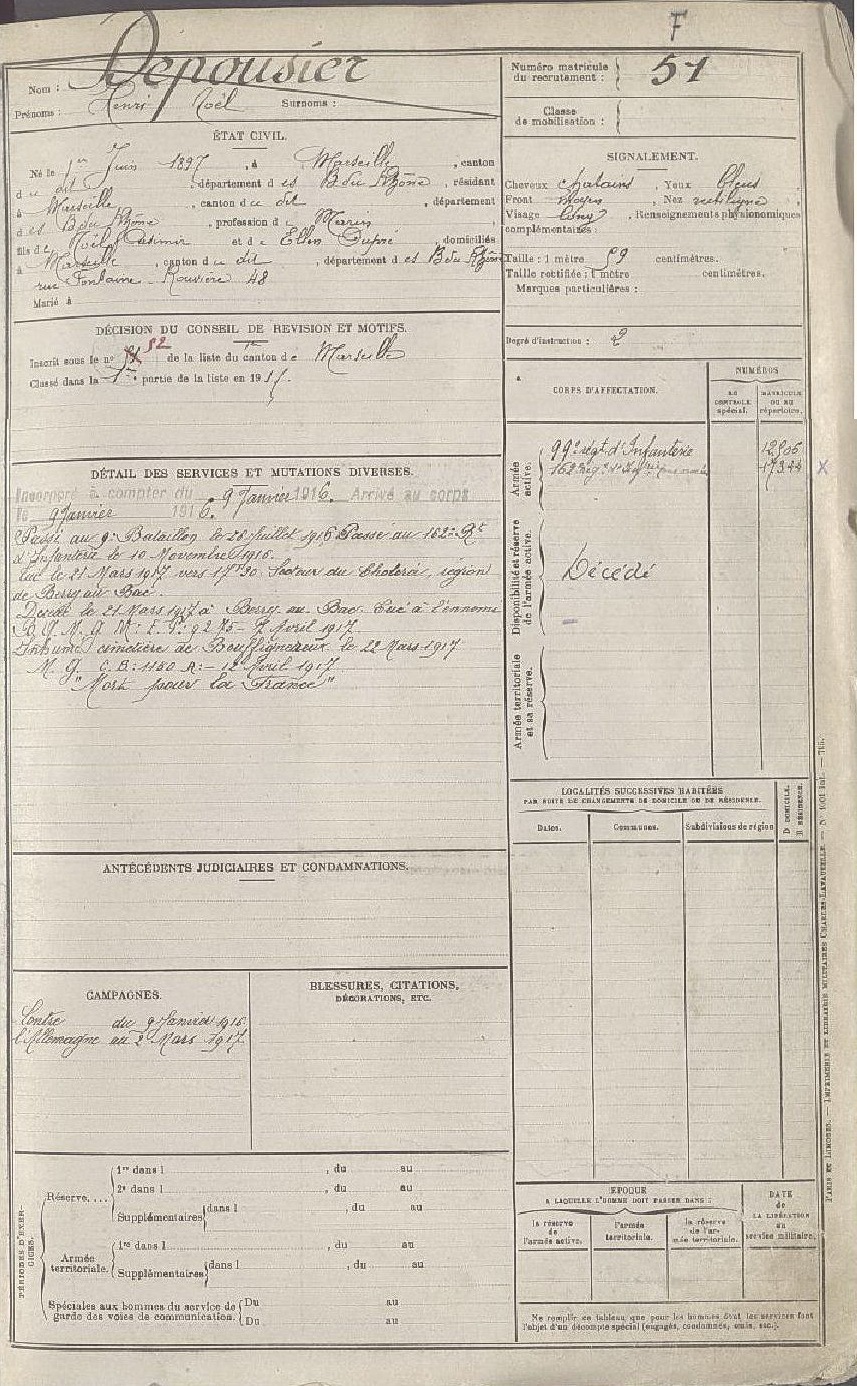 F
Nom : Dépousier
Prénoms : Henri Noël Surnoms :
Numéro matricule du recrutement : 51
Classe de mobilisation :
ÉTAT CIVIL.
Né le 1er Juin 1897, à Marseille, canton
du dit, département des B du Rhône, résidant
à Marseille, canton du dit, département
des B du Rhône, profession de Marin
fils de Noël Casimir et de Ellen Dupré, domiciliés
à Marseille, canton du dit, département des B du Rhône
rue Fontaine Rouvière 48
Marié à
SIGNALEMENT.
Cheveux chatains, Yeux bleus
Front moyen, Nez rectiligne
Visage long, Renseignements physionomiques
complémentaires :
Taille : 1 mètre 59 centimètres.
Taille rectifiée : 1 mètre centimètres.
Marques particulières :
Degré d'instruction : 2
DÉCISION DU CONSEIL DE REVISION ET MOTIFS.
Inscrit sous le no 52 de la liste du canton de Marseille
Classé dans la 1re partie de la liste en 191
CORPS D'AFFECTATION.
NUMÉROS
AU CONTROLE spécial.
MATRICULE OU AU répertoire.
Armée active.
99e régt d'Infanterie 12906
162e Reg. d'Inf 17344 X
Disponibilité et réserve de l'armée active.
Décédé
Armée territoriale et sa réserve.
DÉTAIL DES SERVICES ET MUTATIONS DIVERSES.
Incorporé à compter du 9 Janvier 1916. Arrivé au corps
le 9 Janvier 1916.
Passé au 9e Bataillon le 28 Juillet 1916 Passé au 162e Rt
d'Infanterie le 10 Novembre 1916.
Tué le 21 Mars 1917 vers 17h30. Secteur du Choléra, région
de Berry au Bac.
Décédé le 21 Mars 1917 à Berry au Bac. Tué à l'ennemi
7 Avril 1917
Inhumé cimetière de Bouffignereux le 22 Mars 1917
M. G. C.B: 1180 R: - 12 Avril 1917
"Mort pour la France"
LOCALITÉS SUCCESSIVES HABITÉES
PAR SUITE DE CHANGEMENTS DE DOMICILE OU DE RÉSIDENCE.
Dates.
Communes.
Subdivisions de région
D DOMICILE.
R RÉSIDENCE.
ANTÉCÉDENTS JUDICIAIRES ET CONDAMNATIONS.
CAMPAGNES.
Contre du 9 Janvier 1916
l'Allemagne au 2 Mars 1917
BLESSURES, CITATIONS,
DÉCORATIONS, ETC.
PÉRIODES D'EXERCICES.
Réserve....
1re dans l , du au
2e dans l , du au
Supplémentaires dans l , du au
Armée territoriale.
1re dans l , du au
Supplémentaires dans l , du au
Spéciales aux hommes du service de garde des voies de communication.
Du au
Du au
EPOQUE
A LAQUELLE L'HOMME DOIT PASSER DANS :
la réserve de l'armée active.
l'armée territoriale.
la réserve de l'armée territoriale.
DATE de LA LIBÉRATION du service militaire.
Ne remplir ce tableau que pour les hommes dont les services font
l'objet d'un décompte spécial (engagés, condamnés, omis, etc.).
PARIS ET LIMOGES. — IMPRIMERIE ET LIBRAIRIE MILITAIRES CHARLES-LAVAUZELLE.